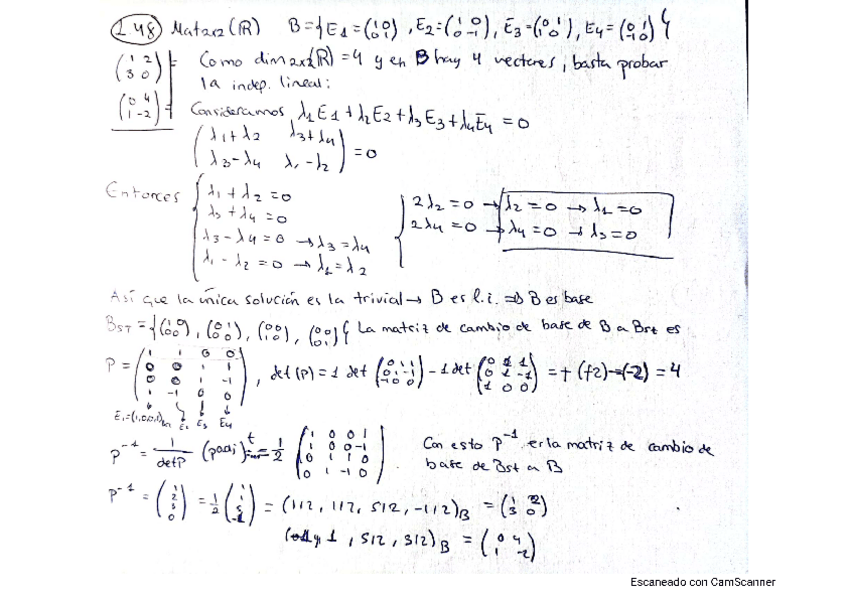 2.48 Mat2x2(ℝ) B={E1=(1 0 / 0 1), E2=(1 0 / 0 -1), E3=(0 1 / 1 0), E4=(0 1 / -1 0)}
(1 2 / 3 0) Como dim 2x2(ℝ)=4 y en B hay 4 vectores, basta probar
la indep. lineal:
(0 4 / 1 -2) Consideramos λ1E1+λ2E2+λ3E3+λ4E4=0
(λ1+λ2 λ3+λ4 / λ3-λ4 λ1-λ2)=0
Entonces {λ1+λ2=0
λ3+λ4=0
λ3-λ4=0 → λ3=λ4
λ1-λ2=0 → λ1=λ2
{2λ2=0 → λ2=0 → λ1=0
2λ4=0 → λ4=0 → λ3=0
Así que la única solución es la trivial → B es l.i. ⇒ B es base
BST={(1 0 / 0 0), (0 1 / 0 0), (0 0 / 1 0), (0 0 / 0 1)} La matriz de cambio de base de B a BST es
P=(1 1 0 0 / 0 0 1 1 / 0 0 1 -1 / 1 -1 0 0), det(P)=1 det(0 1 1 / 0 1 -1 / -1 0 0) -1 det(0 1 1 / 0 1 -1 / 1 0 0)=+(+2)-(-2)=4
E1=(1,0,0,1) E2 E3 E4
P⁻¹=1/detP (P adj)ᵗ=1/2 (1 0 0 1 / 1 0 0 -1 / 0 1 1 0 / 0 1 -1 0). Con esto P⁻¹ es la matriz de cambio de
base de Bst a B
P⁻¹=(1 / 2 / 3 / 0)=1/2(1 / 1 / 5 / -1)=(1/2, 1/2, 5/2, -1/2)B=(1 2 / 3 0)
1, 5/2, 3/2)B=(0 4 / 1 -2)
Escaneado con CamScanner